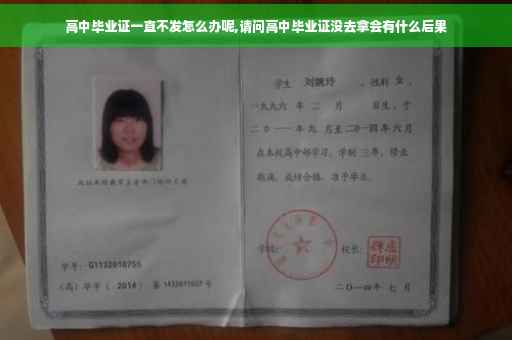 高中毕业证一直不发怎么办呢,请问高中毕业证没去拿会有什么后果
学生 刘婉玲 ,性别 女 ,
一九九六 年 二 月 日生,于
二〇一一年九 月至二〇一四年六月
在本校高中部学习,学制 三年,修业
期满,成绩合格,准予毕业。
学校: 校长:
学号: G1132010755
(高)毕字( 2014 )第 1432011027 号
二〇一四年 七 月